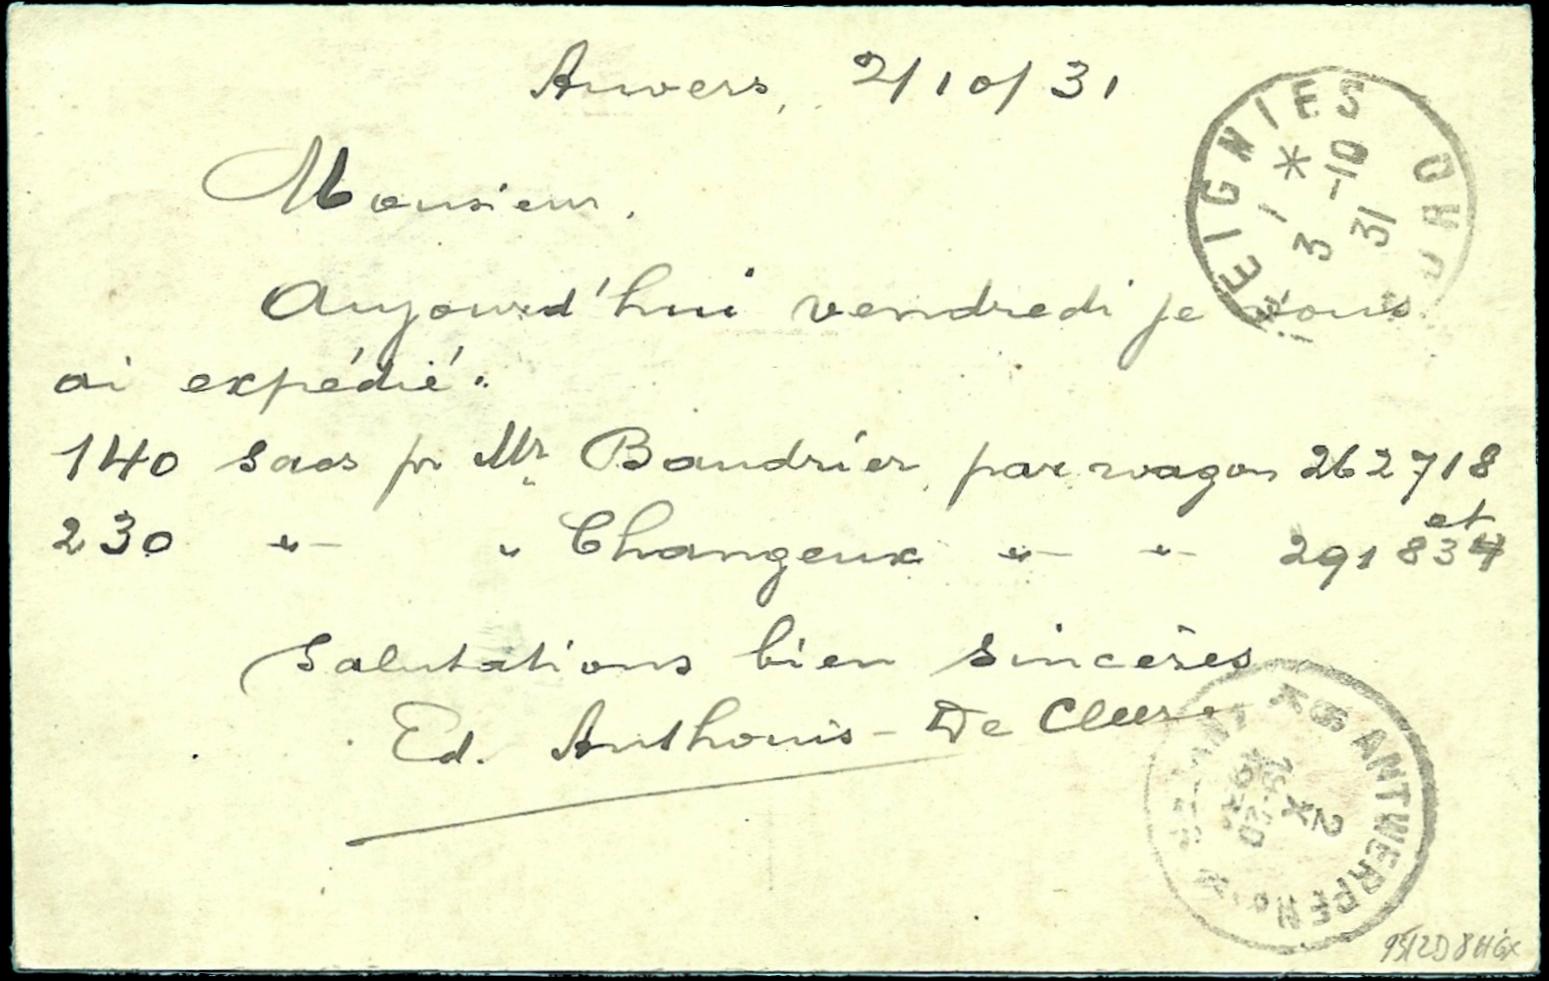 Anvers, 2/10/31
Monsieur,
Aujourd'hui vendredi je vous
ai expédié:
140 sacs pr Mr Baudrier par wagon 262718
et
230 -"- " Changeux -"- -"- 291834
Salutations bien sincères
Ed. Anthonis - De Cleer
FEIGNIES
* 3 -10
31
ANTWERPEN
2 X
19-20